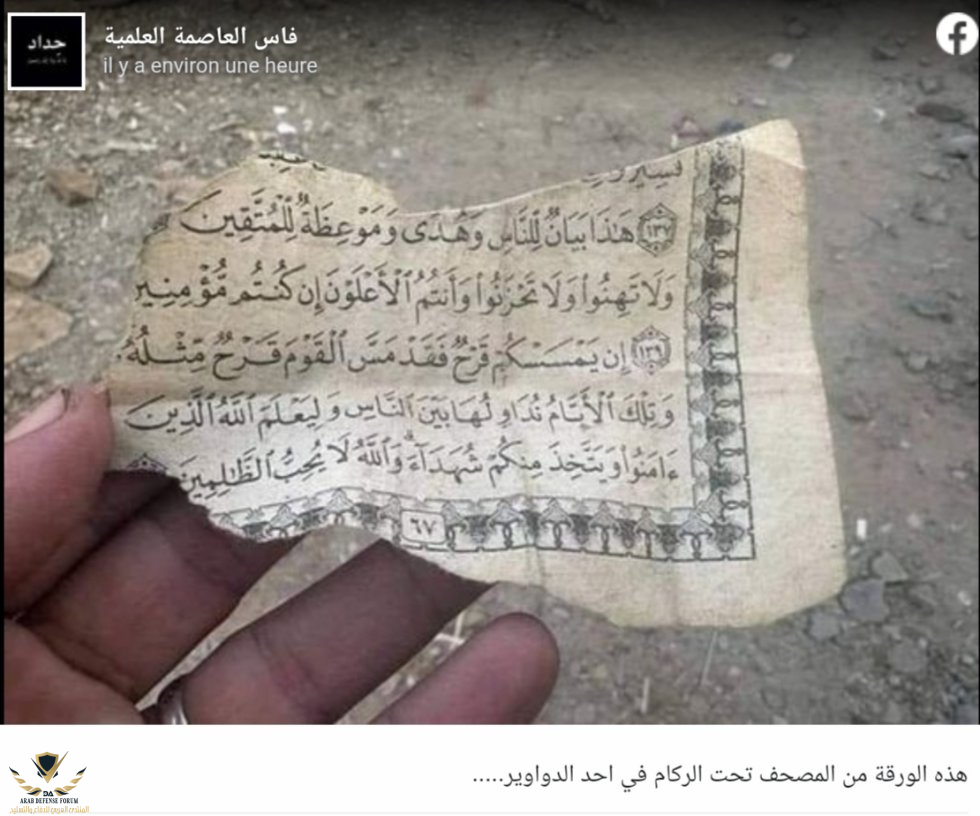 حداد
فاس العاصمة العلمية
il y a environ une heure
۝١٣٧ هَـٰذَا بَيَانٌ لِّلنَّاسِ وَهُدًى وَمَوْعِظَةٌ لِّلْمُتَّقِينَ
وَلَا تَهِنُوا۟ وَلَا تَحْزَنُوا۟ وَأَنتُمُ ٱلْأَعْلَوْنَ إِن كُنتُم مُّؤْمِنِينَ
۝١٣٩ إِن يَمْسَسْكُمْ قَرْحٌ فَقَدْ مَسَّ ٱلْقَوْمَ قَرْحٌ مِّثْلُهُۥ
وَتِلْكَ ٱلْأَيَّامُ نُدَاوِلُهَا بَيْنَ ٱلنَّاسِ وَلِيَعْلَمَ ٱللَّهُ ٱلَّذِينَ
ءَامَنُوا۟ وَيَتَّخِذَ مِنكُمْ شُهَدَآءَ ۗ وَٱللَّهُ لَا يُحِبُّ ٱلظَّـٰلِمِينَ
٦٧
هذه الورقة من المصحف تحت الركام في احد الدواوير.....
DA
ARAB DEFENSE FORUM
المنتدى العربي للدفاع والتسليح